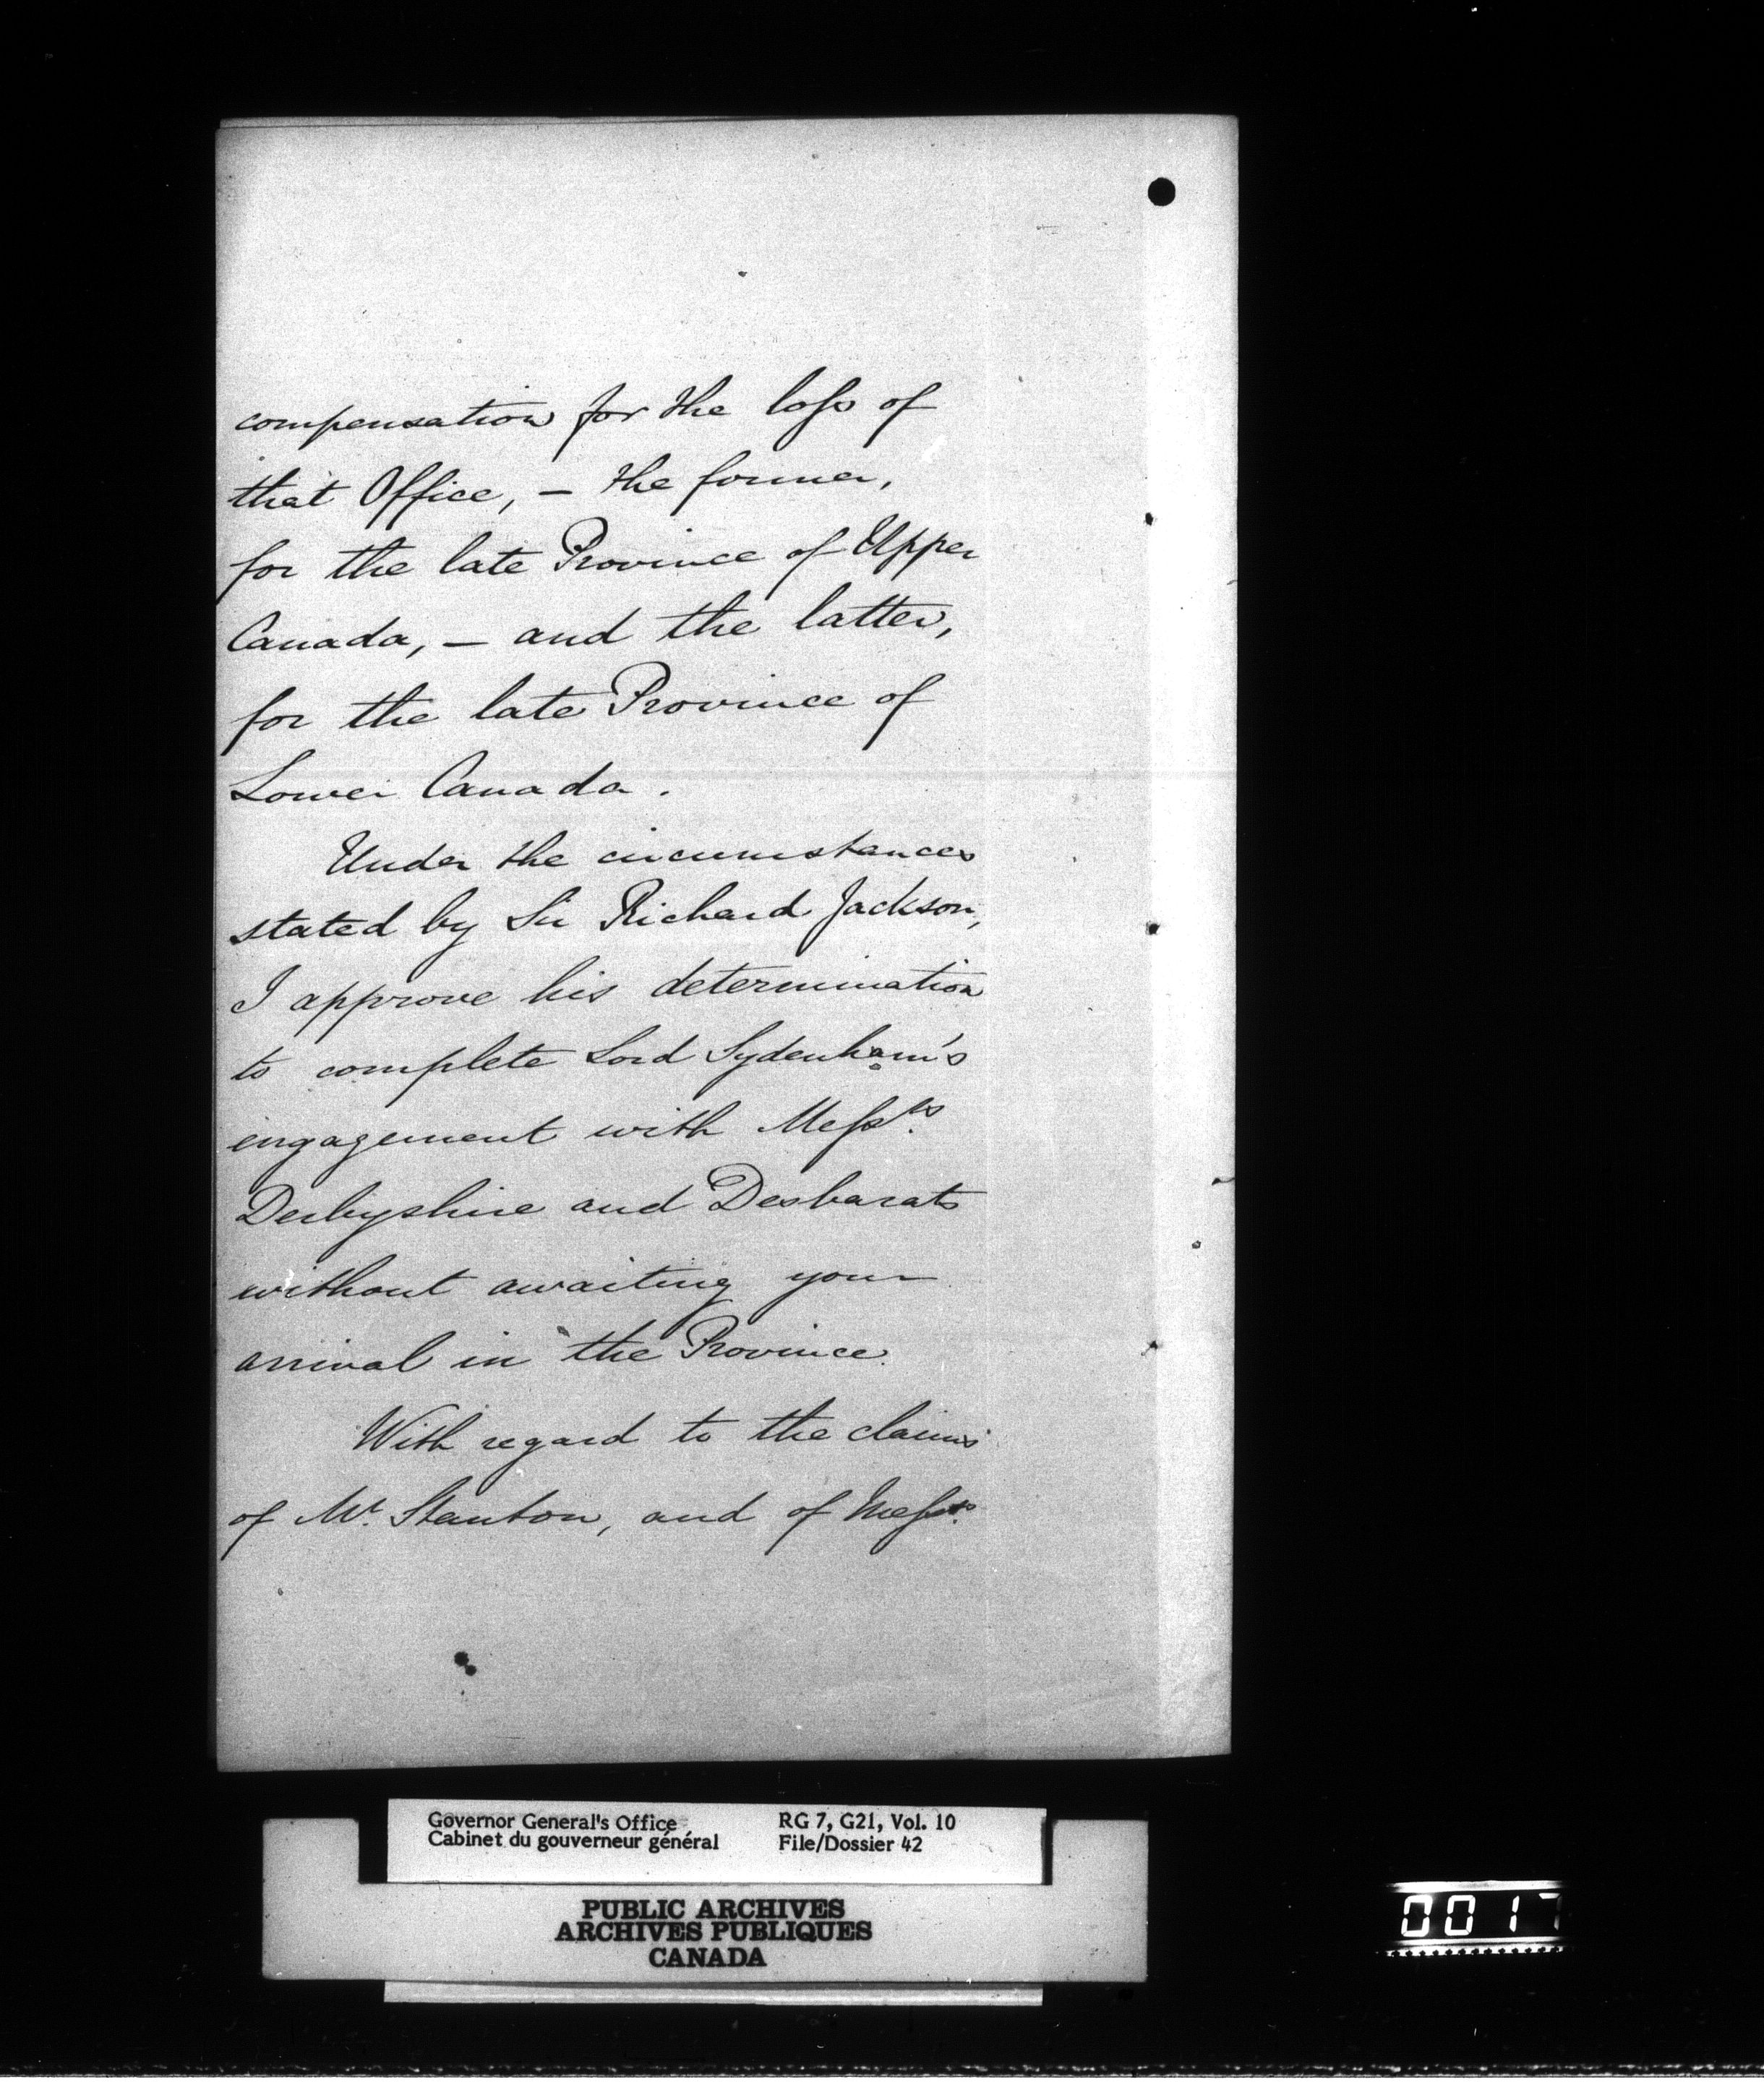 compensation for the loss of
that Office, – the former,
for the late Province of Upper
Canada, – and the latter,
for the late Province of
Lower Canada.
Under the circumstances
stated by Sir Richard Jackson,
I approve his determination
to complete Lord Sydenham's
engagement with Mess.rs
Derbyshire and Desbarats
without awaiting your
arrival in the Province.
With regard to the claims
of Mr. Stanton, and of Mess.rs
Governor General's Office RG 7, G21, Vol. 10
Cabinet du gouverneur général File/Dossier 42
PUBLIC ARCHIVES
ARCHIVES PUBLIQUES
CANADA
0017